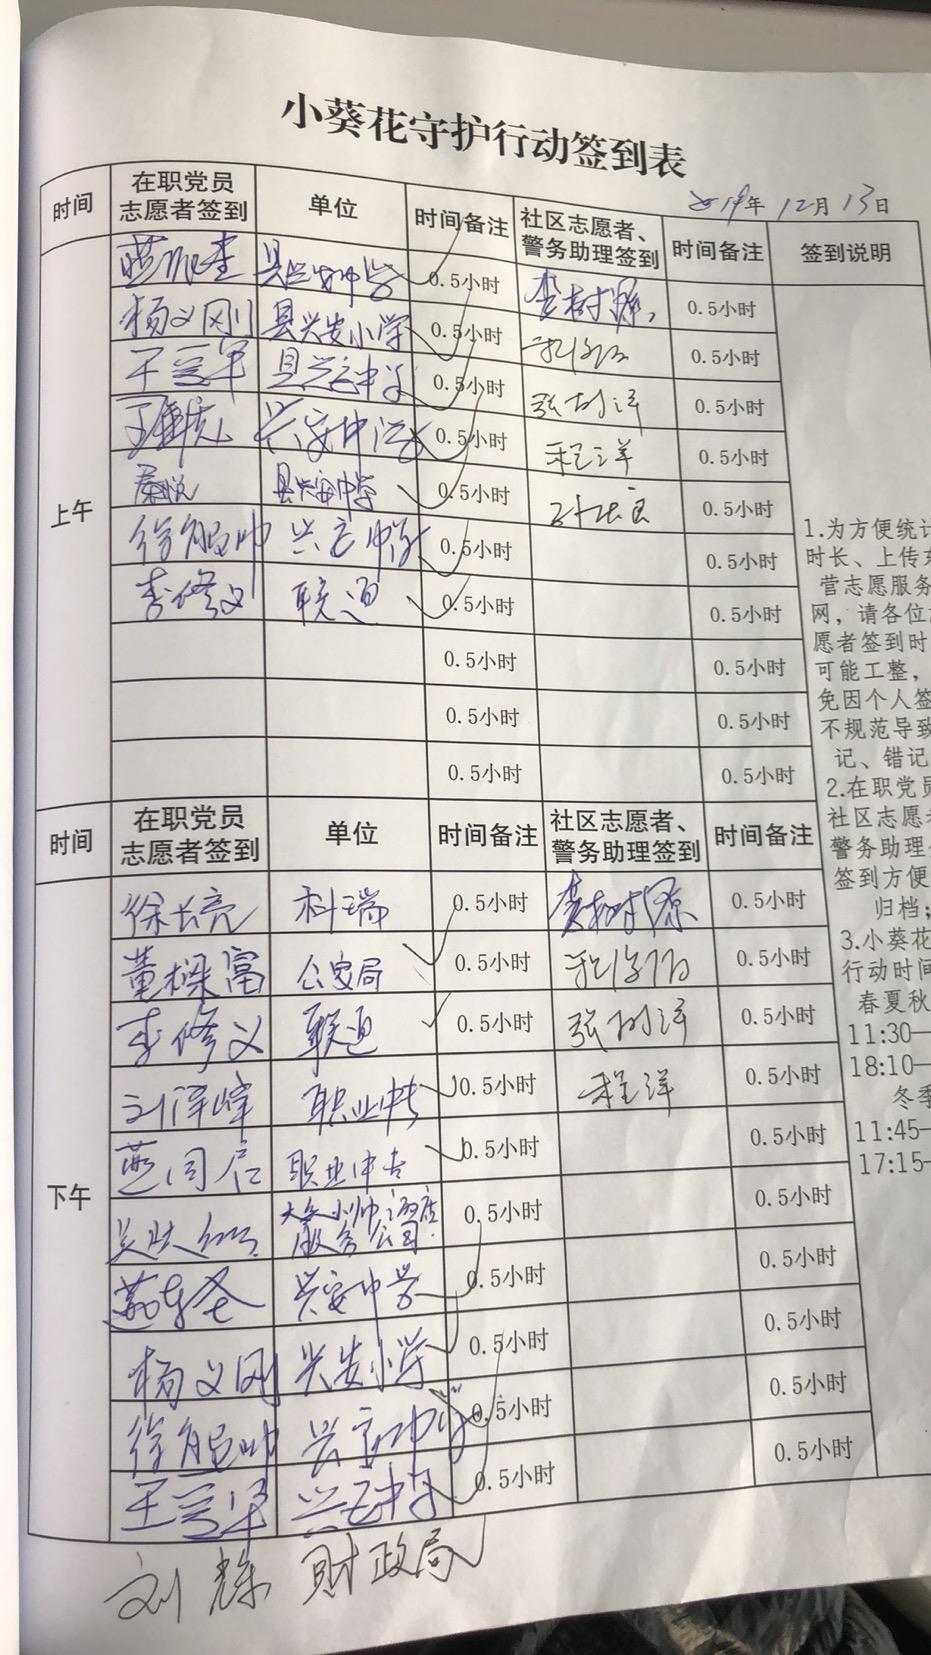 小葵花守护行动签到表
2019年12月13日
时间 在职党员志愿者签到 单位 时间备注 社区志愿者、警务助理签到 时间备注 签到说明
上午
县兴安中学 0.5小时 李树源 0.5小时
杨义刚 县兴安小学 0.5小时 0.5小时
县兴安中学 0.5小时 张树洋 0.5小时
兴安中学 0.5小时 程洋 0.5小时
秦悦 县兴安中学 0.5小时 0.5小时
兴安中学 0.5小时 0.5小时
李修义 联通 0.5小时 0.5小时
0.5小时 0.5小时
0.5小时 0.5小时
0.5小时 0.5小时
时间 在职党员志愿者签到 单位 时间备注 社区志愿者、警务助理签到 时间备注
下午
徐长亮 科瑞 0.5小时 李树源 0.5小时
董樑富 公安局 0.5小时 0.5小时
李修义 联通 0.5小时 张树洋 0.5小时
刘泽峰 职业中专 0.5小时 程洋 0.5小时
燕同启 职业中专 0.5小时 0.5小时
服务公司 0.5小时 0.5小时
兴安中学 0.5小时 0.5小时
杨义刚 兴安小学 0.5小时 0.5小时
兴安中学 0.5小时 0.5小时
兴安中学 0.5小时 0.5小时
刘辉 财政局
1.为方便统计
时长、上传东
营志愿服务
网，请各位
愿者签到时
可能工整，
免因个人签
不规范导致
记、错记
2.在职党员
社区志愿
警务助理
签到方便
归档；
3.小葵花
行动时间
春夏秋
11:30—
18:10—
冬季
11:45—
17:15—